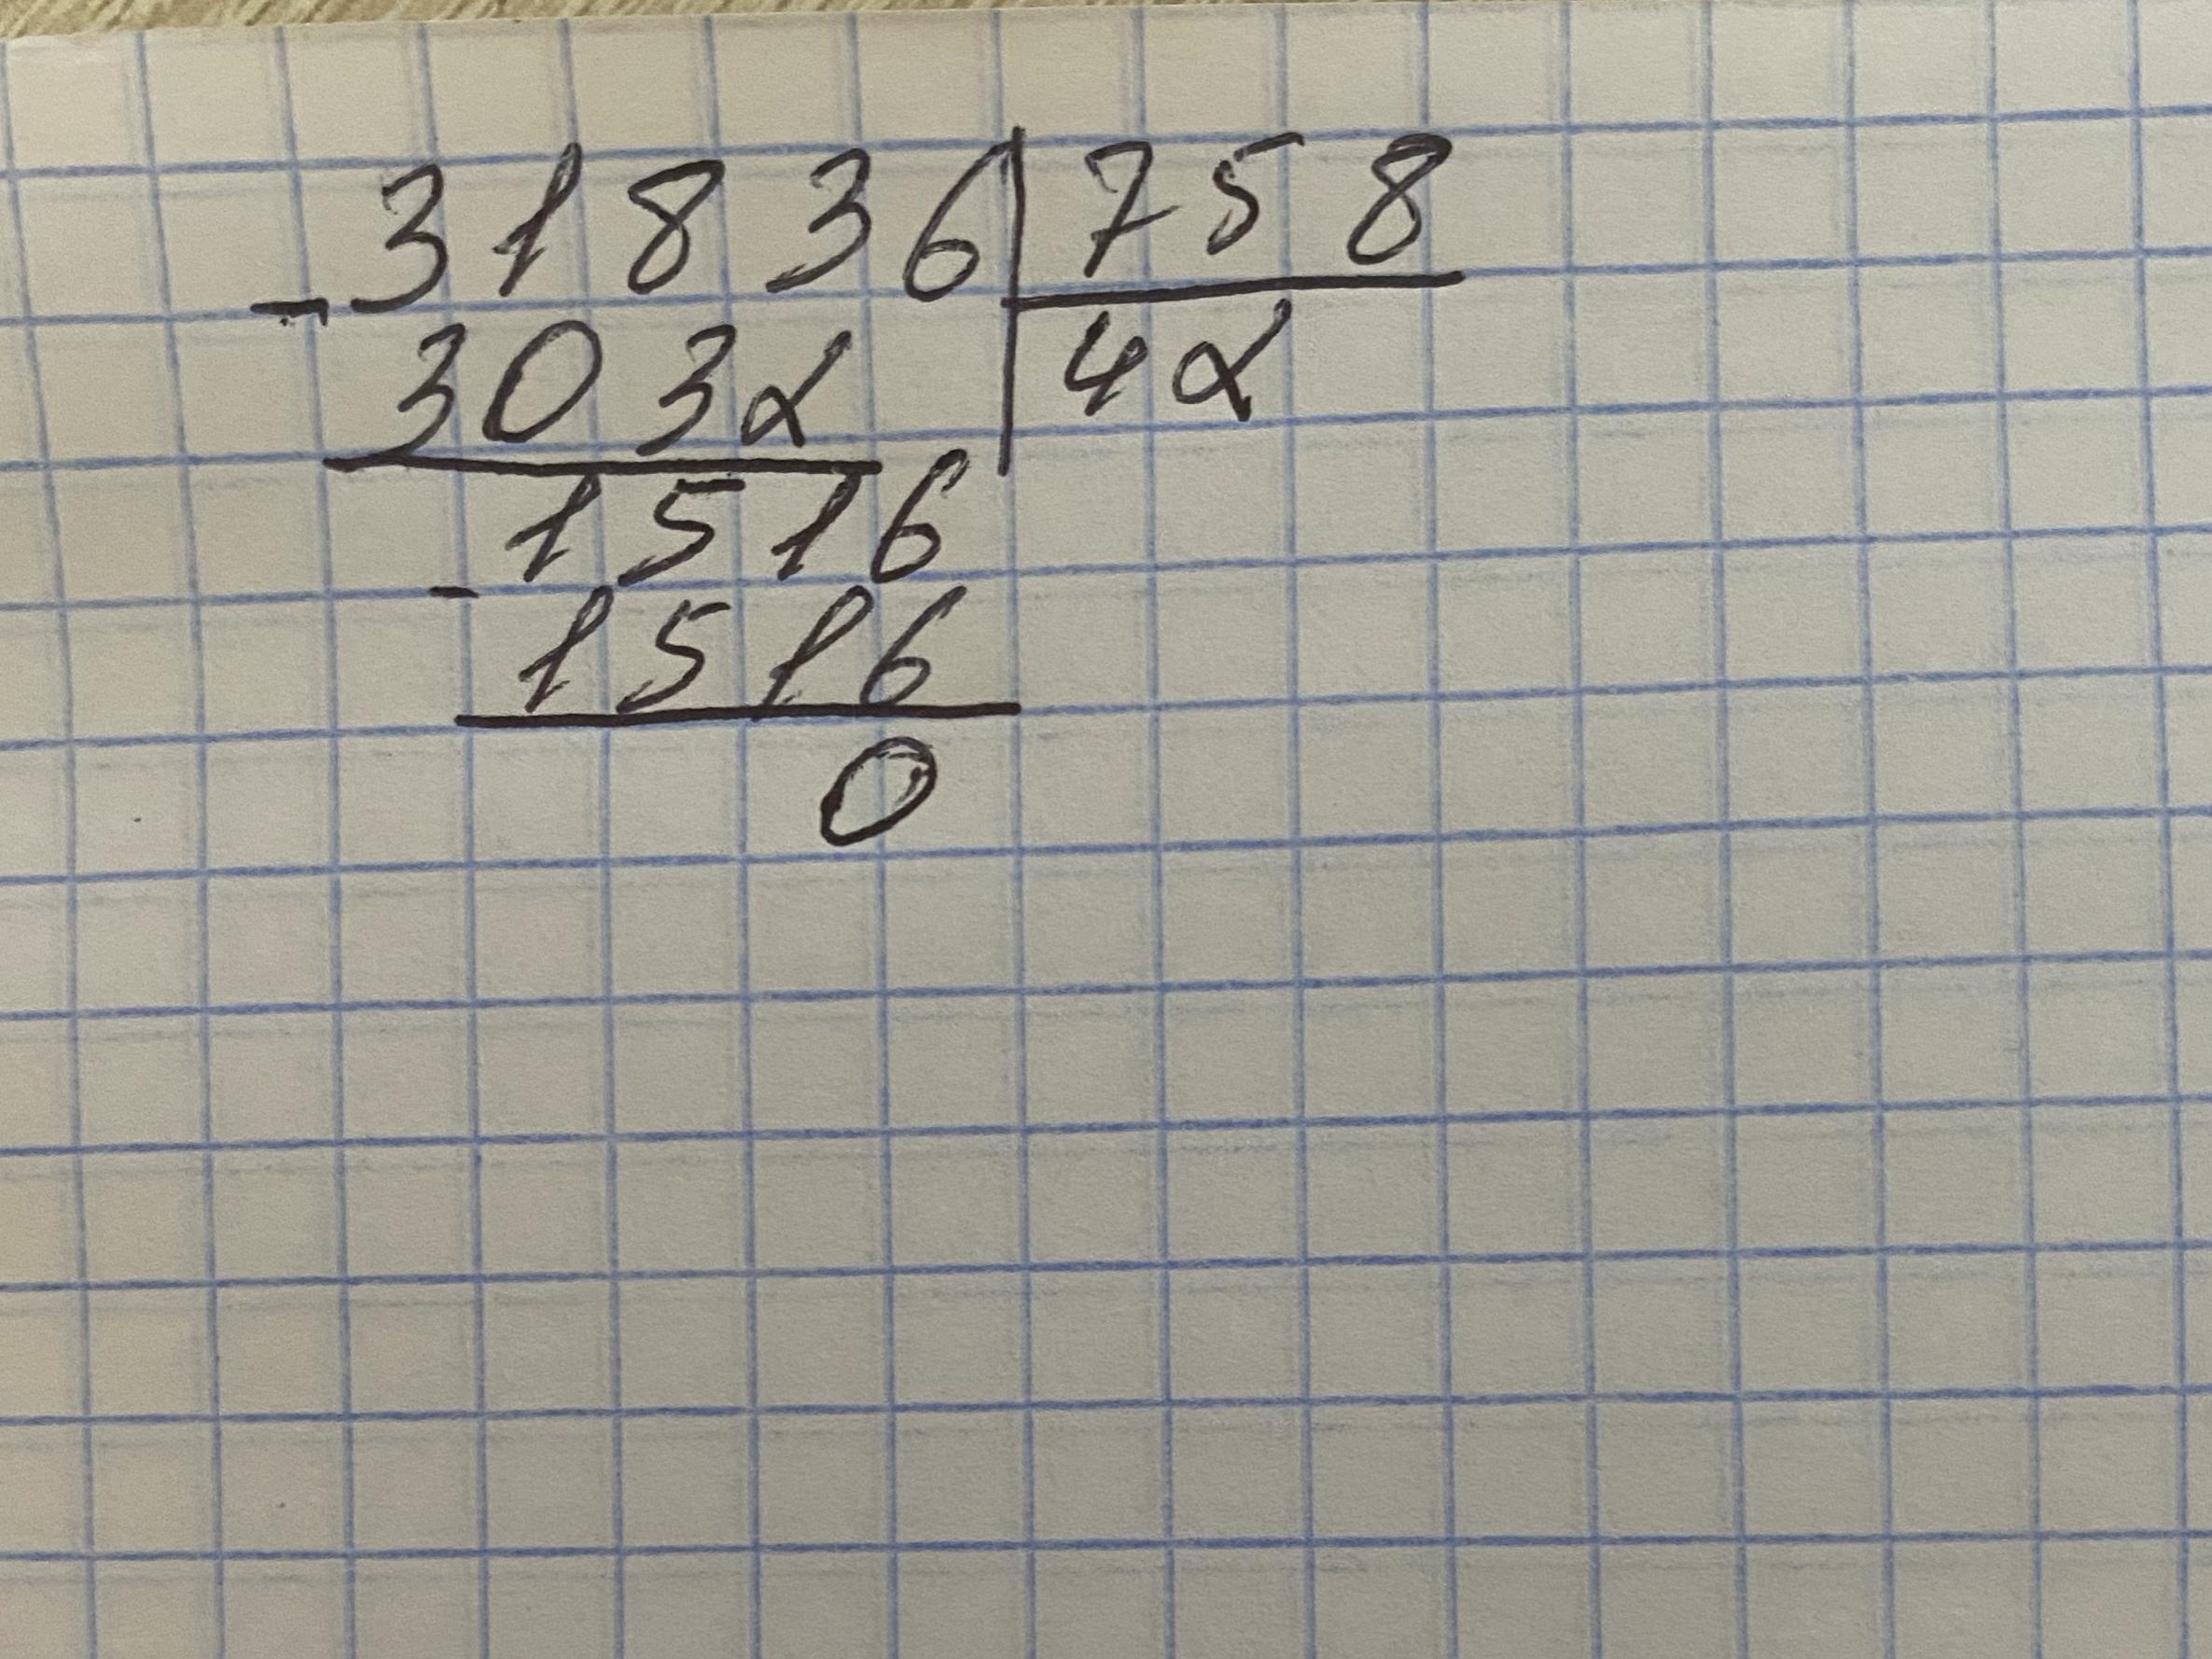 31836 758
3032 42
1516
1516
0